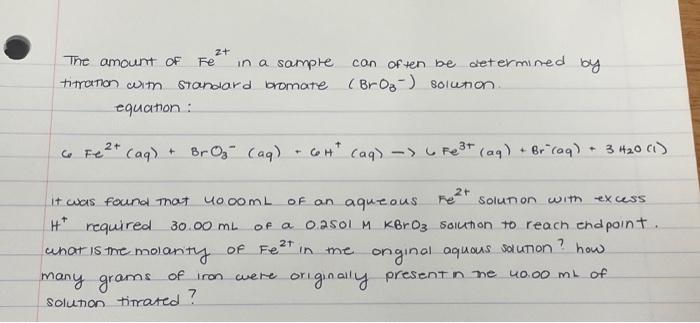 The amount of Fe²⁺ in a sample can often be determined by
titration with standard bromate (BrO₃⁻) solution.
equation:
6 Fe²⁺ (aq) + BrO₃⁻ (aq) + 6H⁺ (aq) —> 6 Fe³⁺ (aq) + Br⁻ (aq) + 3 H2O (l)
it was found that 40.00mL of an aqueous Fe²⁺ solution with excess
H⁺ required 30.00 mL of a 0.2501 M KBrO3 solution to reach endpoint.
what is the molarity of Fe²⁺ in the original aquous solution? how
many grams of iron were originally present n the 40.00 mL of
solution titrated?